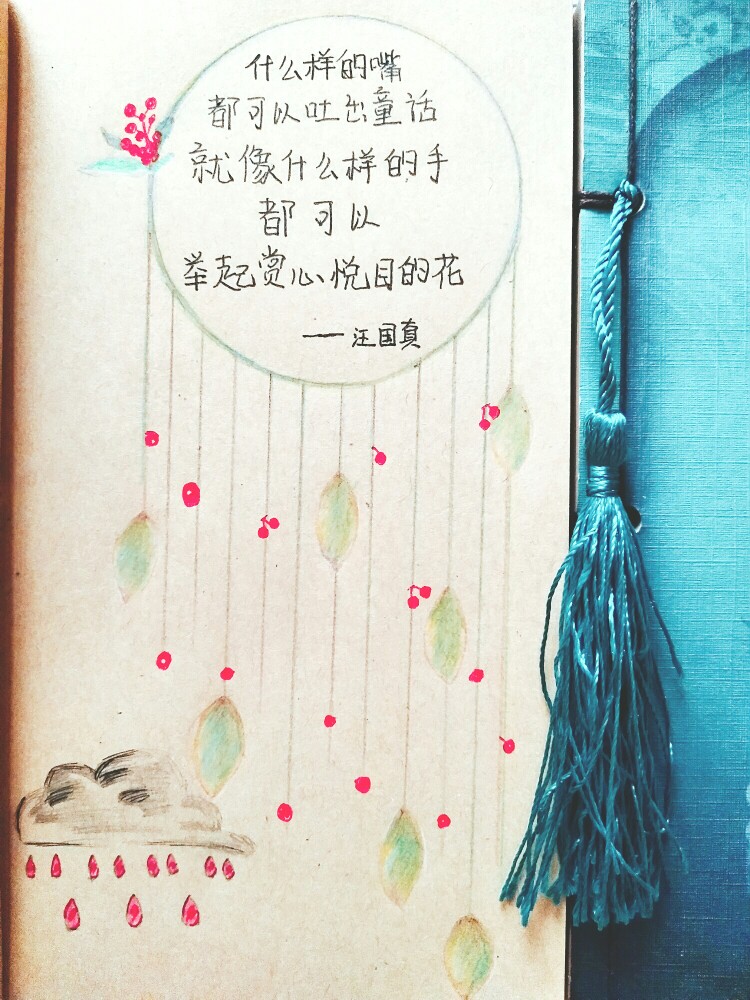 什么样的嘴
都可以吐出童话
就像什么样的手
都可以
举起赏心悦目的花
——汪国真